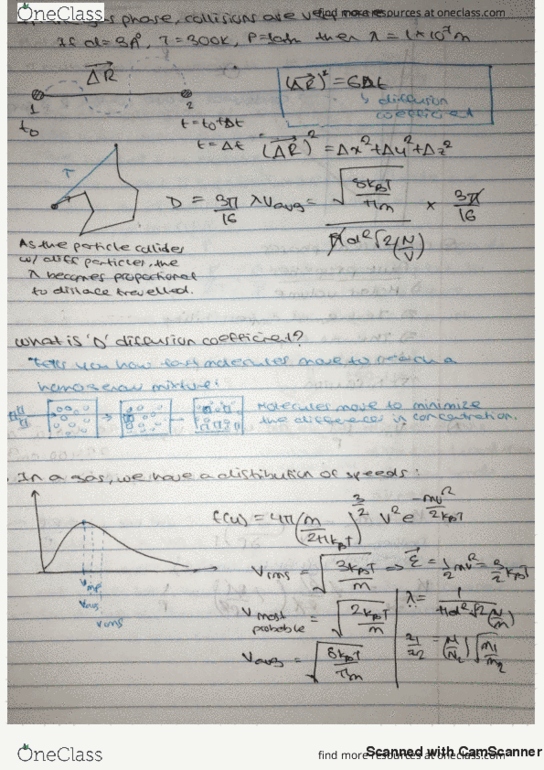 OneClass
find more resources at oneclass.com
gas phase, collisions are
If d = 3A°, T = 300K, P = 1atm then λ = 1*10⁻⁷m
ΔR
1
2
t₀
t = t₀+Δt
t = Δt
(ΔR)² = 6DΔt
↳ diffusion
coefficient
(ΔR)² = Δx²+Δy²+Δz²
D = 3π/16 λVavg = √(8kBT/πm) / (πd²√2(N/V)) × 3π/16
As the particle collides
w/ diff particles, the
λ becomes proportional
to distace travelled.
What is 'D' diffusion coefficient?
Tells you how fast molecules move to reach a
homogenous mixture!
Molecules move to minimize
the difference in concentration.
In a gas, we have a distribution of speeds:
f(u) = 4π(m/2πkBT)^3/2 v² e^-mv²/2kBT
Vmp
Vavg
Vrms
Vrms √(3kBT/m) ⇒ ε = 1/2 mv² = 3/2 kBT
Vmost probable = √(2kBT/m)
Vavg = √(8kBT/πm)
λ = 1/(πd²√2(N/m))
z1/z2 = (N/N2)√(m1/m2)
OneClass
find more resources at oneclass.com
Scanned with CamScanner